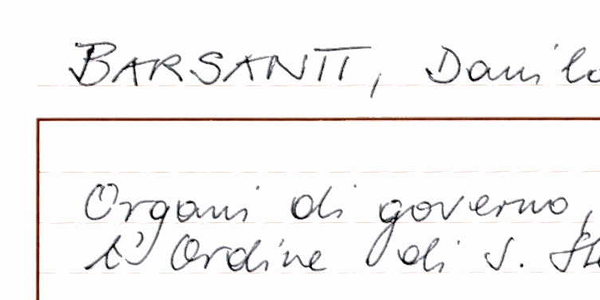 BARSANTI, Danilo
Organi di governo,
L'Ordine di S.